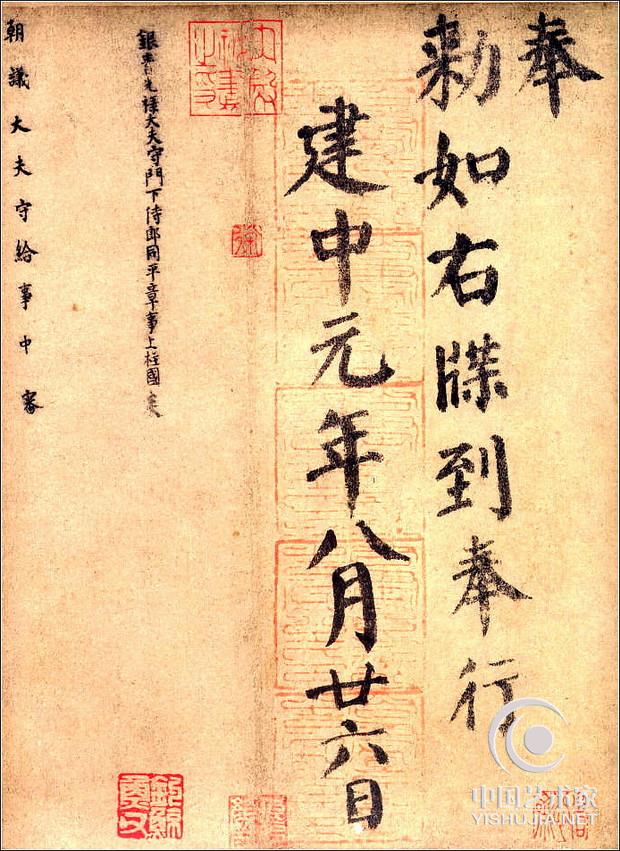 奉
勅如右牒到奉行
建中元年八月廿六日
銀青光祿大夫守門下侍郎同平章事上柱國
朝議大夫守給事中審
中国艺术家
YISHUJIA.NET